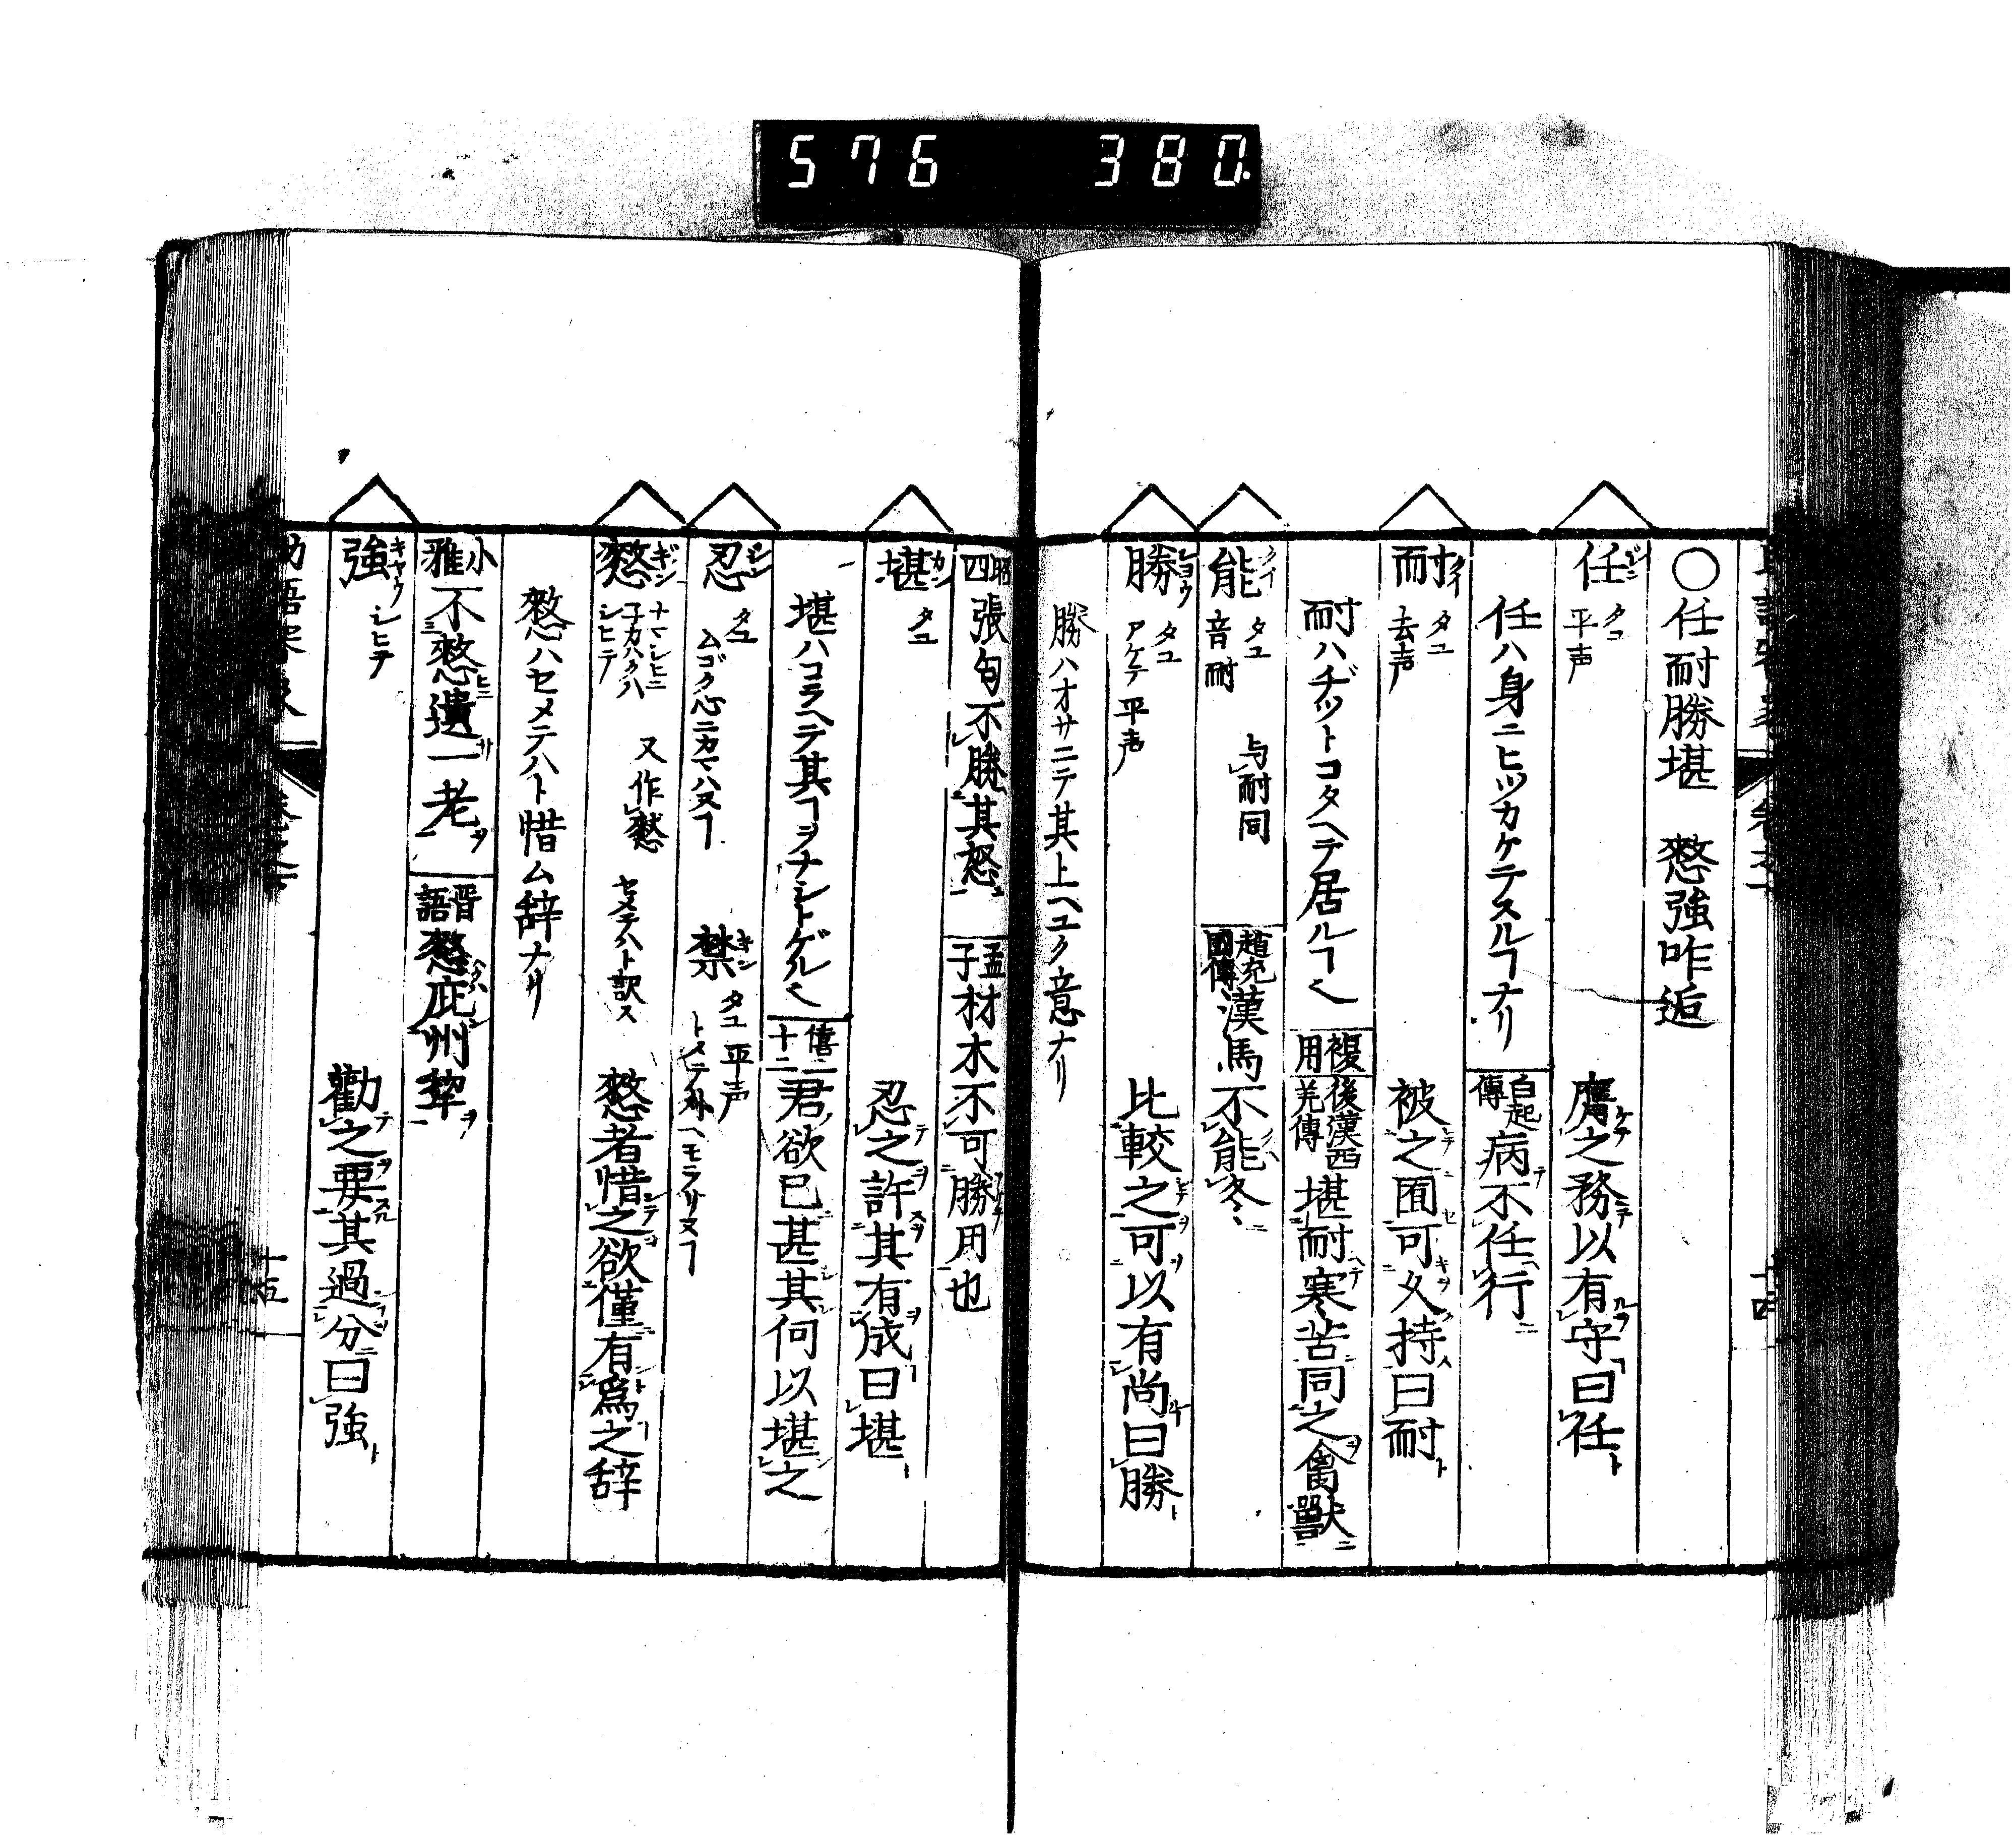 576 380.
○任耐勝堪 憖強咋逅
任 ニン タユ 平声 膺之務以有守曰任
任ハ身ニヒツカケテスルヿナリ 白起傳 病不任行
耐 タイ タユ 去声 被之囿可久持曰耐
耐ハヂツトコタヘテ居ルヿ也 複用 後漢西羌傳 堪耐寒苦同之禽獸
能 タイ タユ 音耐 与耐同 趙充國傳 漢馬不能冬
勝 シヨウ タユ アケテ 平声 比較之可以有尚曰勝
勝ハオサニテ其上ヘユク意ナリ
昭四 張匄不勝其怒 孟子 材木不可勝用也
堪 カン タユ 忍之許其有成曰堪
堪ハコラヘテ其ヿヲナシトゲル也 僖二十二 君欲已甚其何以堪之
忍 シン タユ ムゴク心ニカマハヌヿ 禁 キン タユ 平声 トメテ外ヘモラサヌヿ
憖 ギン ナマシヒニ 子カハクハ シヒテ 又作憗 セメテハト訳ス 憖者惜之欲僅有為之辞
憖ハセメテハト惜ム辞ナリ
小雅 不憖遺一老 晋語 憖庇州犂
強 キヤウ シヒテ 勸之要其過分曰強
十五